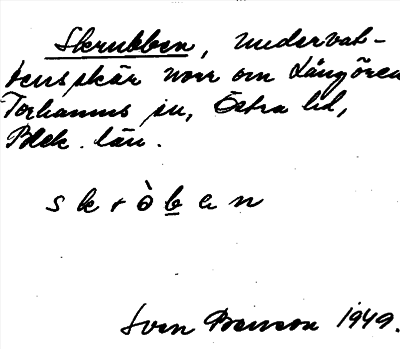 Skrubben, undervat-
tensskär norr om Långören
Torhamns sn, Östra hd,
Blek. län.
skròben
Sven Benson 1949.